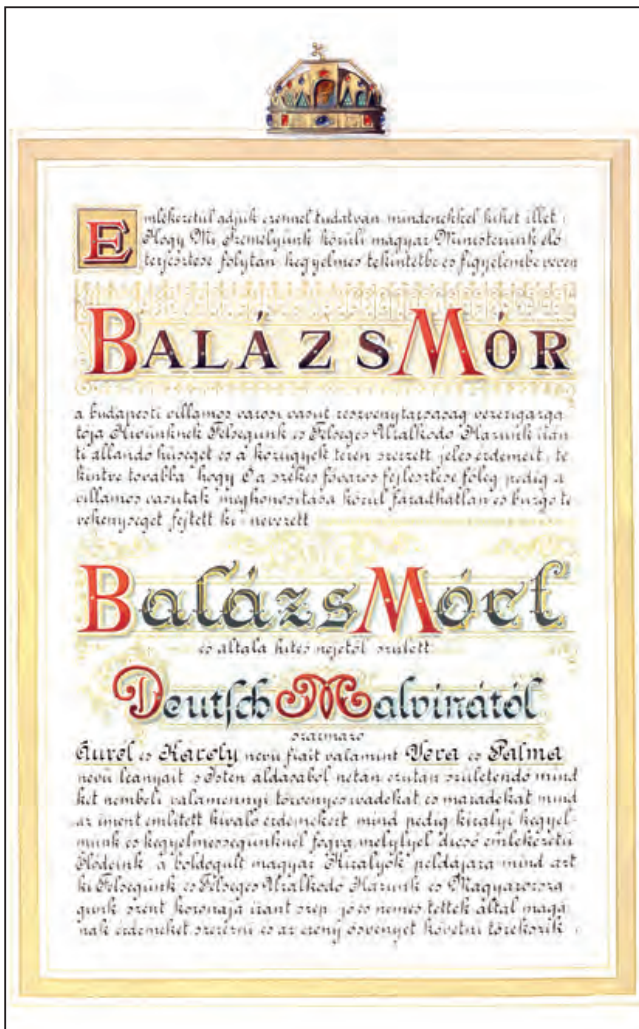 Emlékezetül adjuk ezennel tudatván mindenekkel kiket illet:
Hogy Mi Személyünk körüli magyar Ministerünk elő
terjesztése folytán kegyelmes tekintetbe és figyelembe vévén
BALÁZS MÓR
a budapesti villamos városi vasut részvénytársaság vezérigazga
tója Hivünknek Felségünk és Felséges Uralkodó Házunk irán
ti állandó hűségét és a közügyek terén szerzett jeles érdemeit, te
kintve továbbá hogy Ő a székes főváros fejlesztése főleg pedig a
villamos vasutak meghonosítása körül fáradhatlan és buzgó te
vékenységet fejtett ki nevezett
Balázs Mórt
és általa hites nejétől született
Deutsch Malvinától
származó
Aurél és Károly nevű fiait valamint Vera és Palma
nevű leányait s Isten áldásából netán ezután születendő mind
két nembeli valamennyi törvényes ivadékát és maradékát mind
az imént említett kiváló érdemekért mind pedig királyi kegyel-
münk és kegyelmességünknél fogva melylyel dicső emlékezetű
Elődeink a boldogult magyar Királyok példájára mind azt
ki Felségünk és Felséges Uralkodó Házunk és Magyarorszá
gunk szent koronája iránt szép jó és nemes tettek által magá
nak érdemeket szerezni és az erény ösvényét követni törekszik